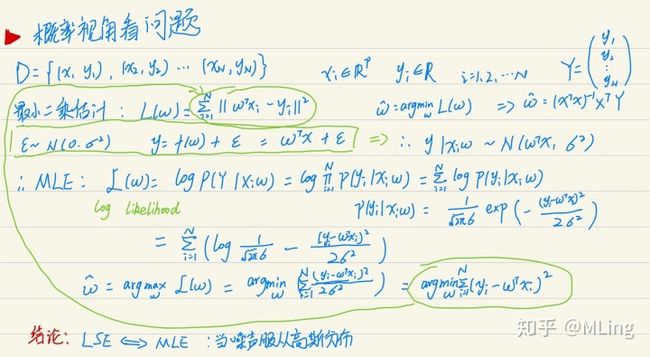 概率视角看问题
D={(x₁,y₁), (x₂,y₂) ⋯ (x_N,y_N)} xᵢ∈ℝᵖ yᵢ∈ℝ i=1,2,⋯N Y=(y₁ y₂ ⋮ y_N)
最小二乘估计: L(ω)=∑ᵢ₌₁ᴺ ||ωᵀxᵢ-yᵢ||² ω̂=argmin_ω L(ω) ⇒ ω̂=(XᵀX)⁻¹XᵀY
ε~N(0.σ²) y=f(ω)+ε=ωᵀx+ε ⇒ ∴ y|x;ω ~ N(ωᵀx, σ²)
∴ MLE: L(ω)= log P(Y|x;ω) = log ∏ᵢ₌₁ᴺ P(yᵢ|xᵢ;ω) = ∑ᵢ₌₁ᴺ log P(yᵢ|xᵢ;ω)
log likelihood P(yᵢ|xᵢ;ω) = 1/(√(2π)σ) exp(-(yᵢ-ωᵀxᵢ)²/2σ²)
= ∑ᵢ₌₁ᴺ (log 1/(√(2π)σ) - (yᵢ-ωᵀxᵢ)²/2σ²)
ω̂ = argmax_ω L(ω) = argmin_ω (∑ᵢ₌₁ᴺ (yᵢ-ωᵀxᵢ)²/2σ²) = argmin_ω ∑ᵢ₌₁ᴺ (yᵢ-ωᵀxᵢ)²
结论: LSE ⇔ MLE : 当噪声服从高斯分布
知乎 @MLing